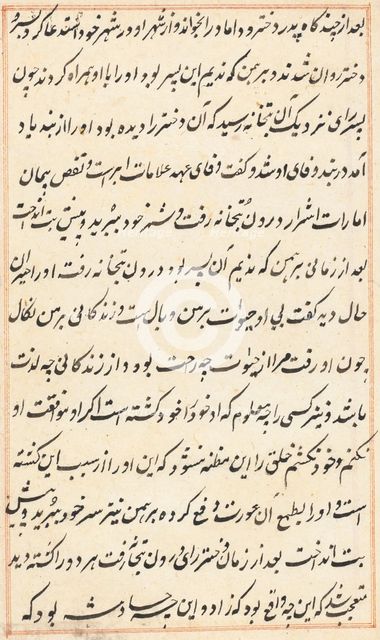 بعد از چندگاه پدر دختر و داماد را بخواند و از شهر او در شهر خود آمدند
دختر روان شدند برهمن که ندیم این پسر بود او را با او همراه کردند چون
پسر رای نزدیک آن بتخانه رسید که آن دختر را دیده بود او را از بند یاد
آمد در بند وفای او شد و گفت وفای عهد علامات ابرار است و نقص پیمان
امارات اشرار درون بتخانه رفت و سر خود ببرید و پیش بت انداخت
بعد از زمانی برهمن که ندیم آن پسر بود درون بتخانه رفت او را حیران
حال دید گفت بی او حیوات برمن وبال است و زندگانی برمن نکال
چون او رفت مرا از حیوات چه راحت بود و از زندگانی چه لذت
باشد و نیز کسی را چه معلوم که او خود را خود کشته است اگر او موافقت او
نکنم و خود نکشم خلق را این مظنه شود که این او را از سبب این کشته
است و او را بطمع آن عورت دفع کرده برهمن نیز سر خود ببرید و پیش
بت انداخت بعد از زمانی دختر رای درون بتخانه رفت هر دو را کشته دید
متعجب شد که این چه واقع بود که زاد و این چه حادثه بود که